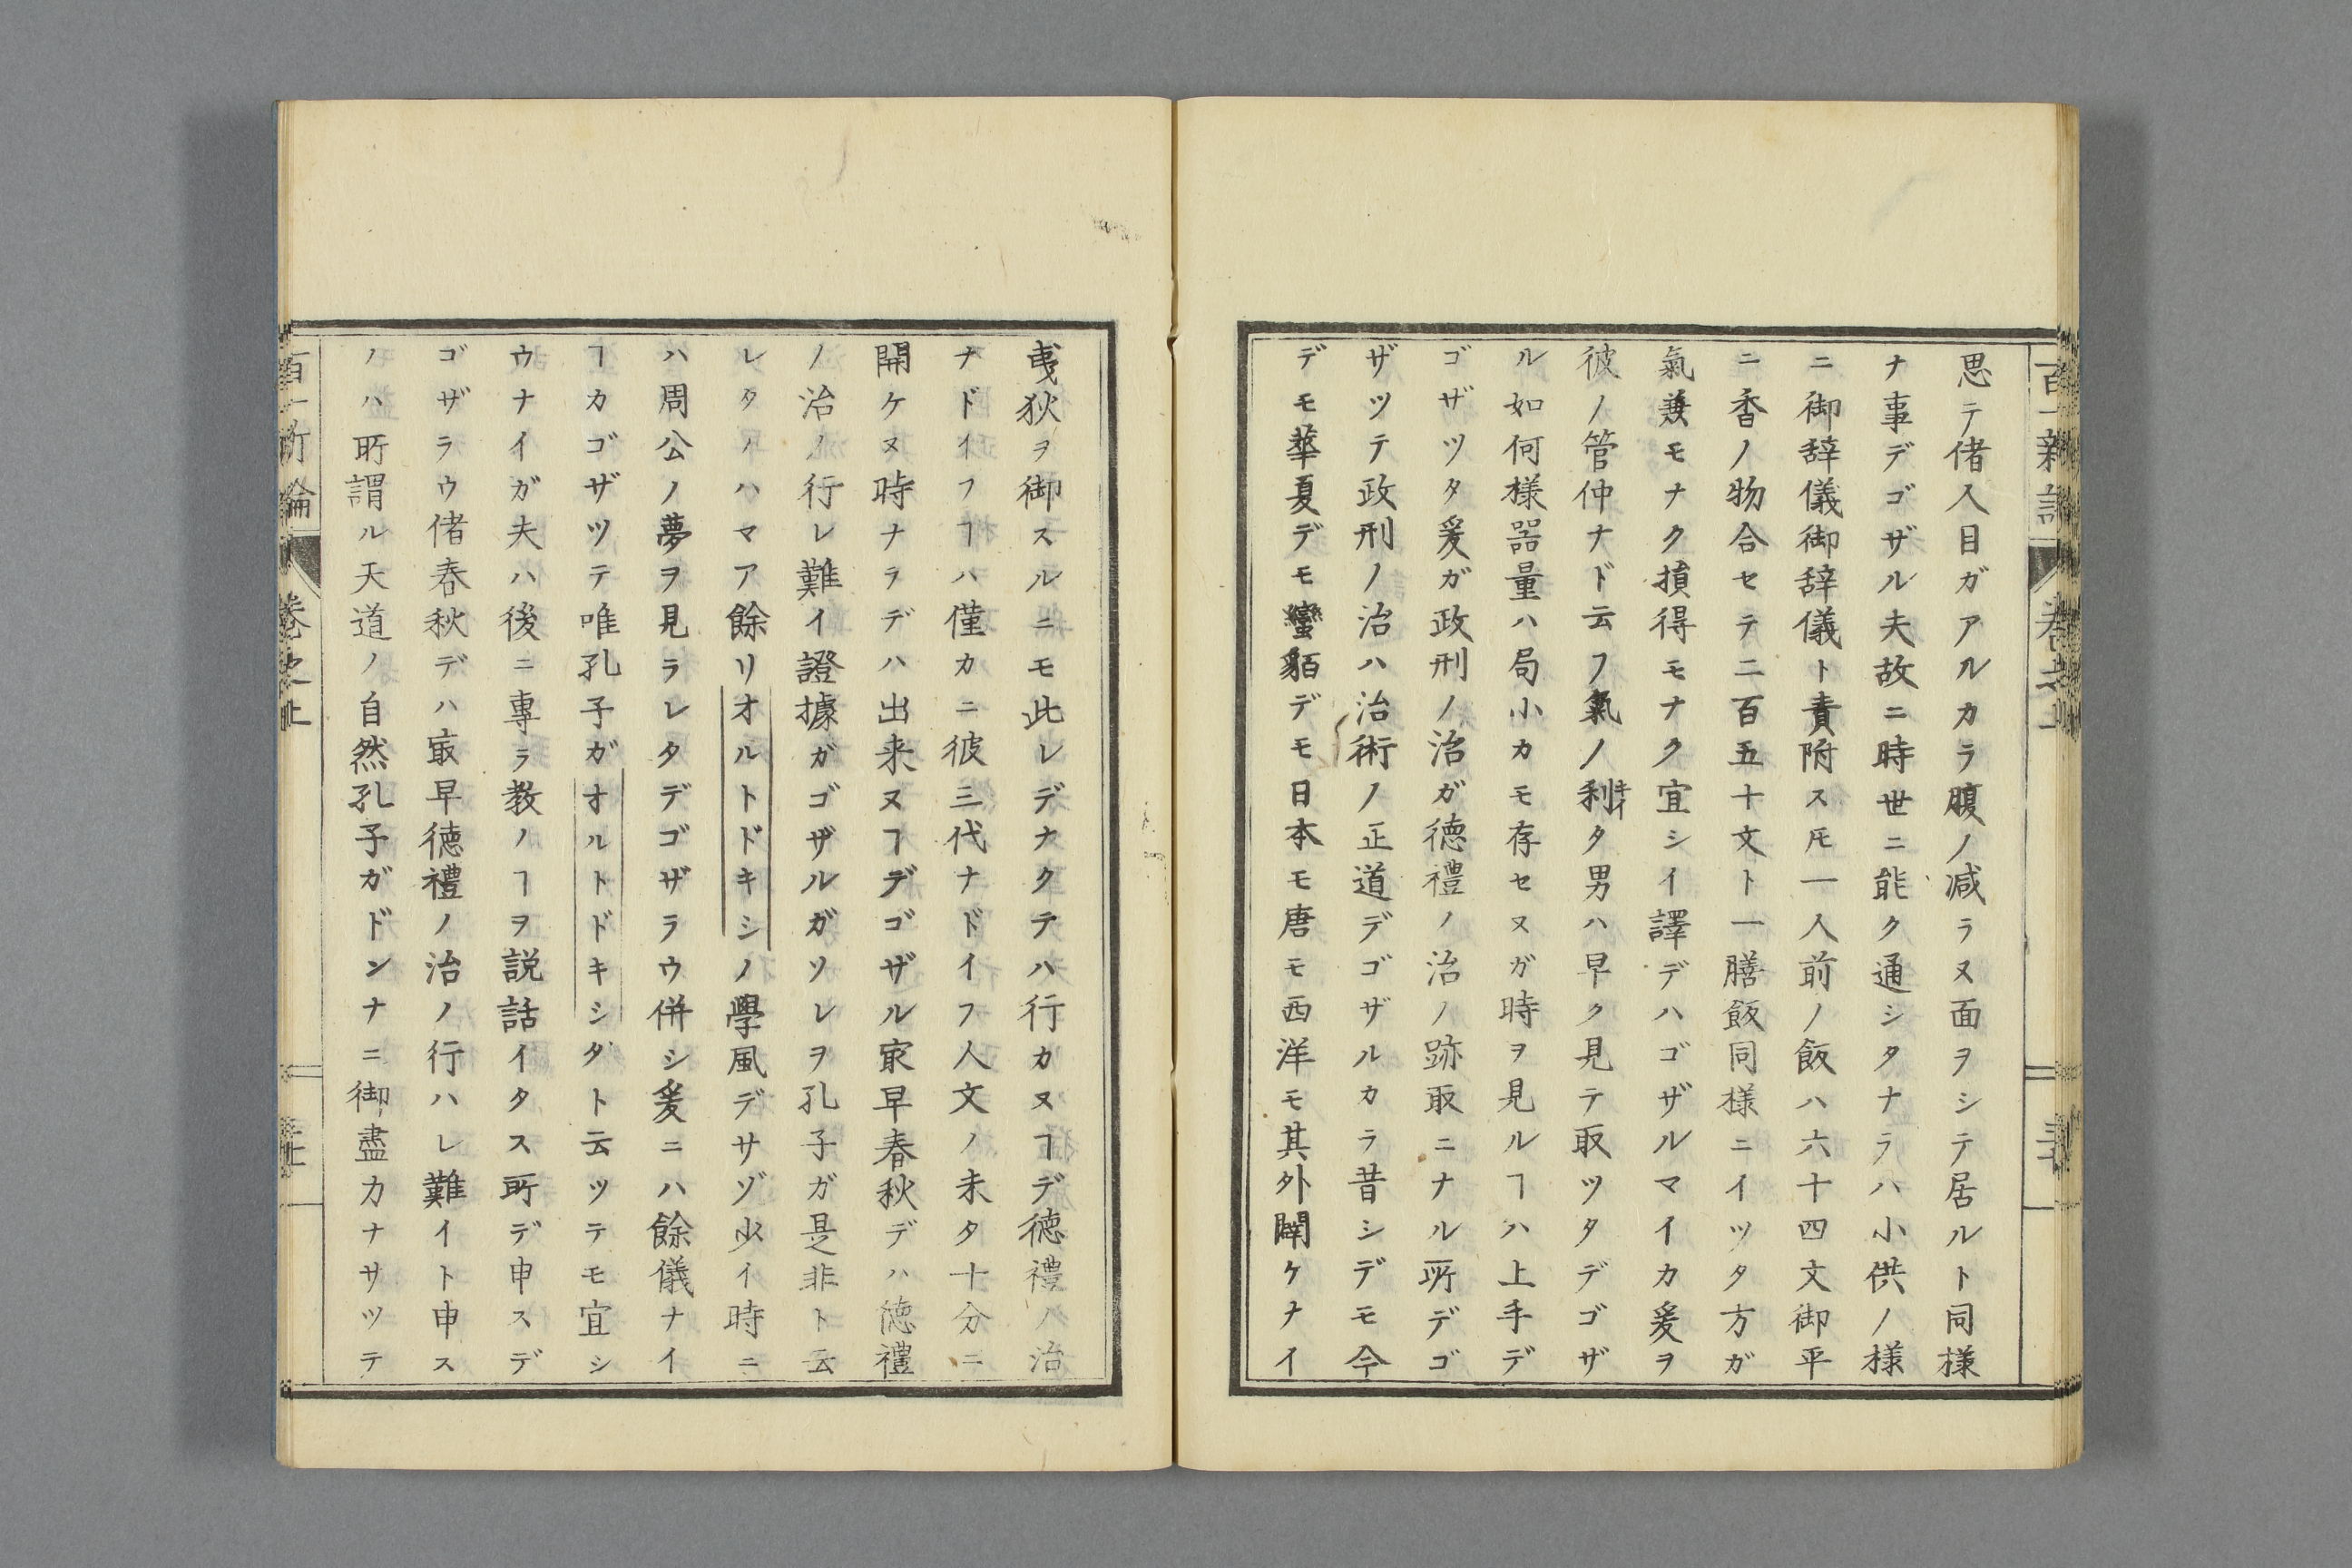 百一新論 卷之上
思テ偖入目ガアルカラ腹ノ減ラヌ面ヲシテ居ルト同様
ナ事デゴザル夫故ニ時世ニ能ク通シタナラハ小供ノ様
ニ御辞儀御辞儀ト責附スㇳモ一人前ノ飯ハ六十四文御平
ニ香ノ物合セテ二百五十文ト一膳飯同様ニイツタ方ガ
氣兼モナク損得モナク宜シイ譯デハゴザルマイカ爰ヲ
彼ノ管仲ナド云フ氣ノ利タ男ハ早ク見テ取ツタデゴザ
キイ
ル如何様噐量ハ局小カモ存セヌガ時ヲ見ルヿハ上手デ
ゴザツタ爰ガ政刑ノ治ガ徳禮ノ治ノ跡取ニナル所デゴ
ザツテ政刑ノ治ハ治術ノ正道デゴザルカラ昔シデモ今
デモ華夏デモ蠻貊デモ日本モ唐モ西洋モ其外開ケナイ
夷狄ヲ御スルニモ此レデナクテハ行カヌヿデ徳禮ノ治
ナドイフヿハ僅カニ彼三代ナドイフ人文ノ未タ十分ニ
開ケヌ時ナラデハ出来ヌヿデゴザル冣早春秋デハ徳禮
ノ治ノ行レ難イ證據ガゴザルガソレヲ孔子ガ是非ト云
レタノハマア餘リオルトドキシノ學風デサゾ少イ時ニ
ハ周公ノ夢ヲ見ラレタデゴザラウ併シ爰ニハ餘儀ナイ
ヿカゴザツテ唯孔子ガオルトドキシダト云ツテモ宜シ
ウナイガ夫ハ後ニ專ラ教ノヿヲ説話イタス所デ申スデ
ゴザラウ偖春秋デハ冣早徳禮ノ治ノ行ハレ難イト申ス
ノハ所謂ル天道ノ自然孔子ガドンナニ御盡力ナサツテ
百一新論 卷之上